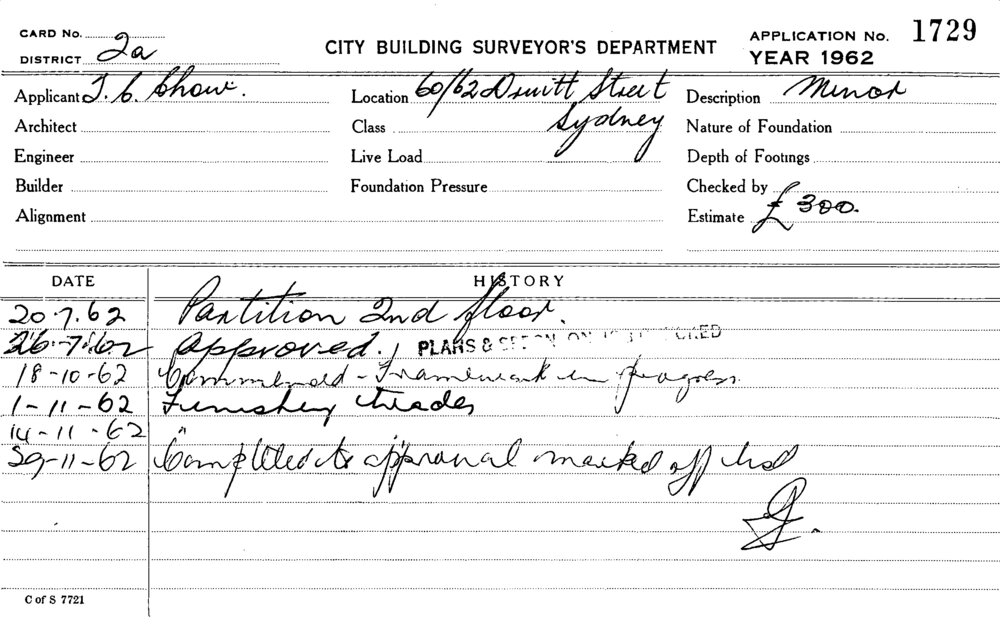 CARD No.
DISTRICT 2a
CITY BUILDING SURVEYOR'S DEPARTMENT
APPLICATION No. 1729
YEAR 1962
Applicant T. C. Chow.
Location 60/62 Druitt Street
Description Minor
Architect
Class Sydney
Nature of Foundation
Engineer
Live Load
Depth of Footings
Builder
Foundation Pressure
Checked by
Alignment
Estimate £ 300.
DATE HISTORY
20.7.62 Partition 2nd floor.
26.7.62 Approved. PLANS &
18-10-62 Commenced - Framework in progress
1-11-62 Finishing trades
14-11-62 "
29-11-62 Completed to approval marked off
C of S 7721